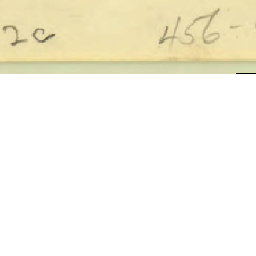 2c 456-